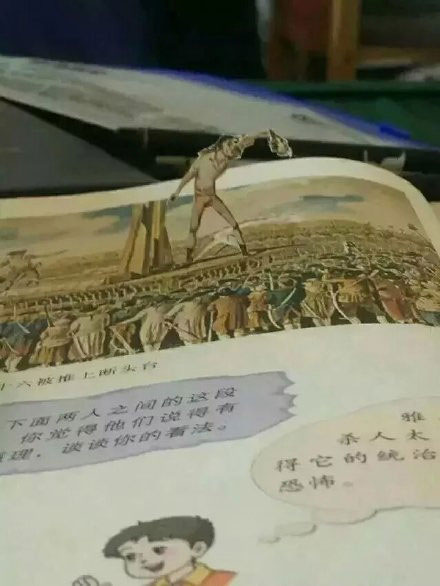 十六被推上断头台
下面两人之间的这段
你觉得他们说得有
道理，谈谈你的看法。
雅
杀人太
得它的统治
恐怖。